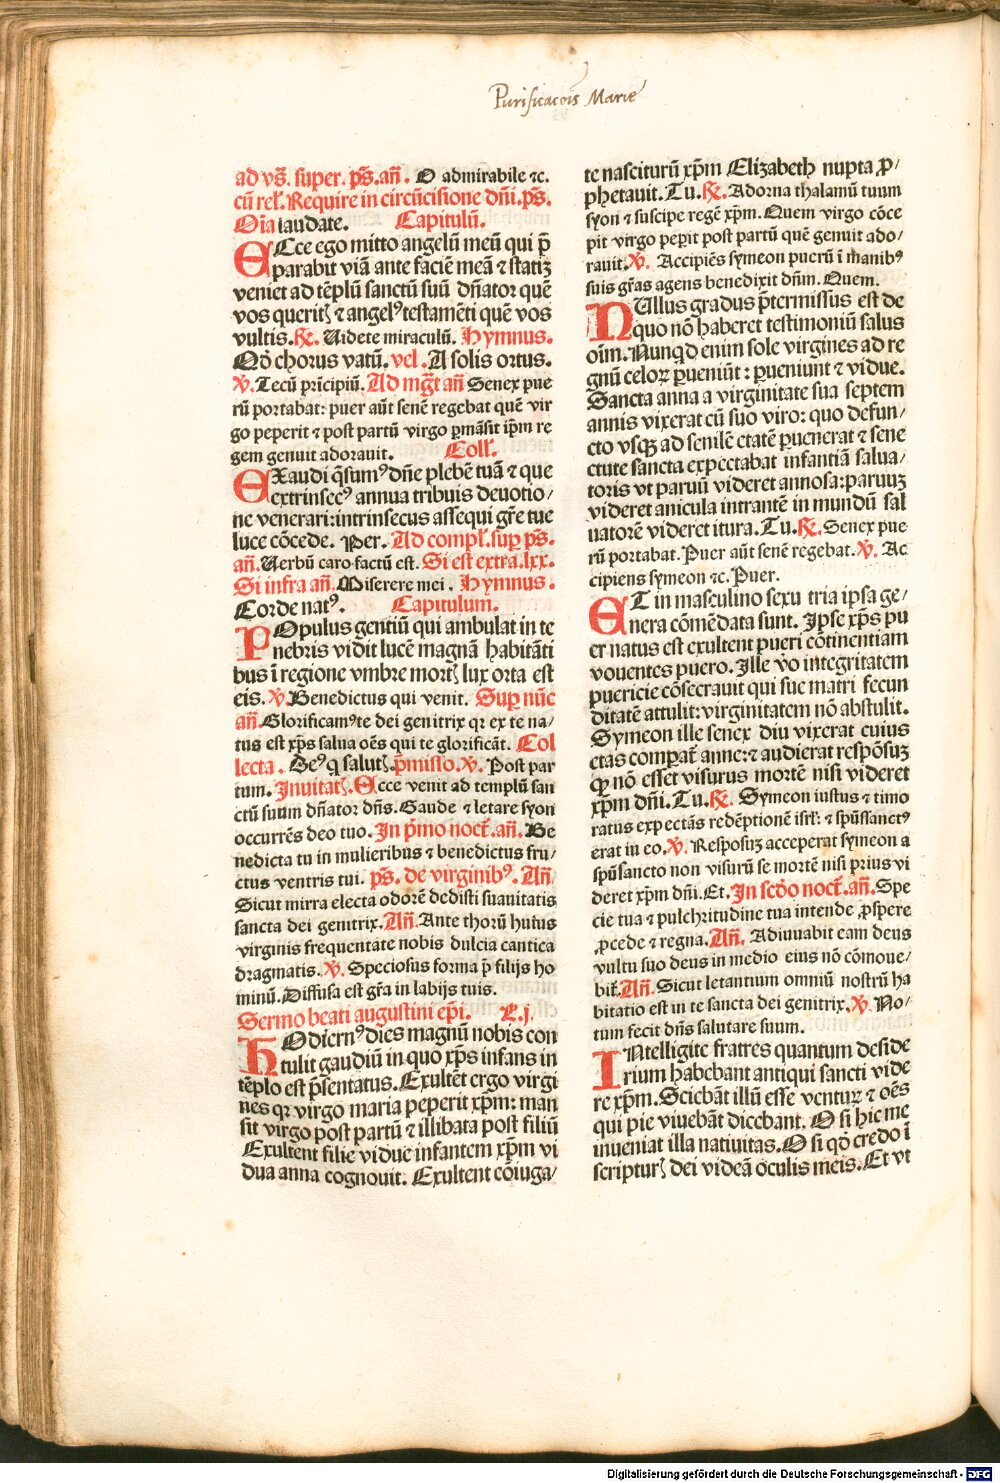 Purificacõis Marie
ad vs̃. super. ps̃. añ. O admirabile ⁊c.
cũ rel̃. Require in circũcisione dñi. ps̃.
Oĩa laudate. Capitulũ.
ECce ego mitto angelũ meũ qui p̃
parabit viã ante faciẽ meã ⁊ statiꝫ
veniet ad tẽplũ sanctũ suũ dñator quẽ
vos queritꝭ ⁊ angelꝰ testamẽti quẽ vos
vultis. ℟. Uidete miraculũ. Hymnus.
Qð chorus vatũ. vel. A solis ortus.
℣. Tecũ prĩcipiũ. Ad mg̃t añ Senex pue
rũ portabat: puer aũt senẽ regebat quẽ vir
go peperit ⁊ post partũ virgo ꝑmãsit ip̃m re
gem genuit adorauit. Coll̃.
EXaudi q̃sumꝰ dñe plebẽ tuã ⁊ que
extrinsecꝰ annua tribuis deuotio/
ne venerari: intrinsecus assequi gr̃e tue
luce cõcede. Per. Ad compl̃. suꝑ ps̃.
añ. Uerbũ caro factũ est. Si est extra .lxx.
Si infra añ. Miserere mei. Hymnus.
Corde natꝰ. Capitulum.
POpulus gentiũ qui ambulat in te
nebris vidit lucẽ magnã habitãti
bus ĩ regione vmbre mortꝭ lux orta est
eis. ℣. Benedictus qui venit. Suꝑ nũc
añ. Glorificamꝰ te dei genitrix qꝛ ex te na/
tus est xp̃s salua oẽs qui te glorificãt. Col
lecta. Deꝰ q̃ salutꝭ. p̃misso. ℣. Post par
tum. Inuitatꝭ. Ecce venit ad templũ san
ctũ suum dñator dñs. Gaude ⁊ letare syon
occurrẽs deo tuo. In p̃mo noct̃. añ. Be
nedicta tu in mulieribus ⁊ benedictus fru/
ctus ventris tui. ps̃. de virginibꝰ. Añ
Sicut mirra electa odorẽ dedisti suauitatis
sancta dei genitrix. Añ. Ante thorũ huius
virginis frequentate nobis dulcia cantica
dragmatis. ℣. Speciosus forma p̃ filijs ho
minũ. Diffusa est gr̃a in labijs tuis.
Sermo beati augustini ep̃i. L.j.
HOdiernꝰ dies magnũ nobis con
tulit gaudiũ in quo xp̃s infans in
tẽplo est p̃sentatus. Exultẽt ergo virgi
nes qꝛ virgo maria peperit xp̃m: man
sit virgo post partũ ⁊ illibata post filiũ
Exultent filie vidue infantem xp̃m vi
dua anna cognouit. Exultent cõiuga/
te nasciturũ xp̃m Elizabeth nupta ꝓ/
phetauit. Tu. ℟. Adorna thalamũ tuum
syon ⁊ suscipe regẽ xp̃m. Quem virgo cõce
pit virgo peꝑit post partũ quẽ genuit ado/
rauit. ℣. Accipiẽs symeon puerũ ĩ manibꝰ
suis gr̃as agens benedixit dñm. Quem.
NUllus gradus p̃termissus est de
quo nõ haberet testimoniũ salus
oĩm. Nunqd enim sole virgines ad re
gnũ celoꝝ ꝑueniũt: ꝑueniunt ⁊ vidue.
Sancta anna a virginitate sua septem
annis vixerat cũ suo viro: quo defun/
cto vsqꝫ ad senilẽ etatẽ ꝑuenerat ⁊ sene
ctute sancta expectabat infantiã salua/
toris vt paruũ videret annosa: paruuꝫ
videret anicula intrantẽ in mundũ sal
uatorẽ videret itura. Tu. ℟. Senex pue
rũ portabat. Puer aũt senẽ regebat. ℣. Ac
cipiens symeon ⁊c. Puer.
ET in masculino sexu tria ipsa ge/
nera cõmẽdata sunt. Ipse xp̃s pu
er natus est exultent pueri cõtinentiam
vouentes puero. Ille vo integritatem
puericie cõsecrauit qui sue matri fecun
ditatẽ attulit: virginitatem nõ abstulit.
Symeon ille senex diu vixerat cuius
etas comparat̃ anne: ⁊ audierat respõsuꝫ
qꝛ nõ esset visurus mortẽ nisi videret
xp̃m dñi. Tu. ℟. Symeon iustus ⁊ timo
ratus expectãs redẽptionẽ isrl̃: ⁊ sp̃ũssanctꝰ
erat in eo. ℣. Resposuꝫ acceperat symeon a
sp̃ũsancto non visurũ se mortẽ nisi prius vi
deret xp̃m dñi. Et. In scðo noct̃. añ. Spe
cie tua ⁊ pulchritudine tua intende ꝓspere
ꝓcede ⁊ regna. Añ. Adiuuabit eam deus
vultu suo deus in medio eius nõ cõmoue/
bit̃. Añ. Sicut letantium omniũ nostrũ ha
bitatio est in te sancta dei genitrix. ℣. No/
tum fecit dñs salutare suum.
INtelligite fratres quantum deside
rium habebant antiqui sancti vide
re xp̃m. Sciebãt illũ esse venturꝫ ⁊ oẽs
qui pie viuebãt dicebant. O si hic me
inueniat illa natiuitas. O si qð credo ĩ
scripturꝭ dei videã oculis meis. Et vt
Digitalisierung gefördert durch die Deutsche Forschungsgemeinschaft - DFG